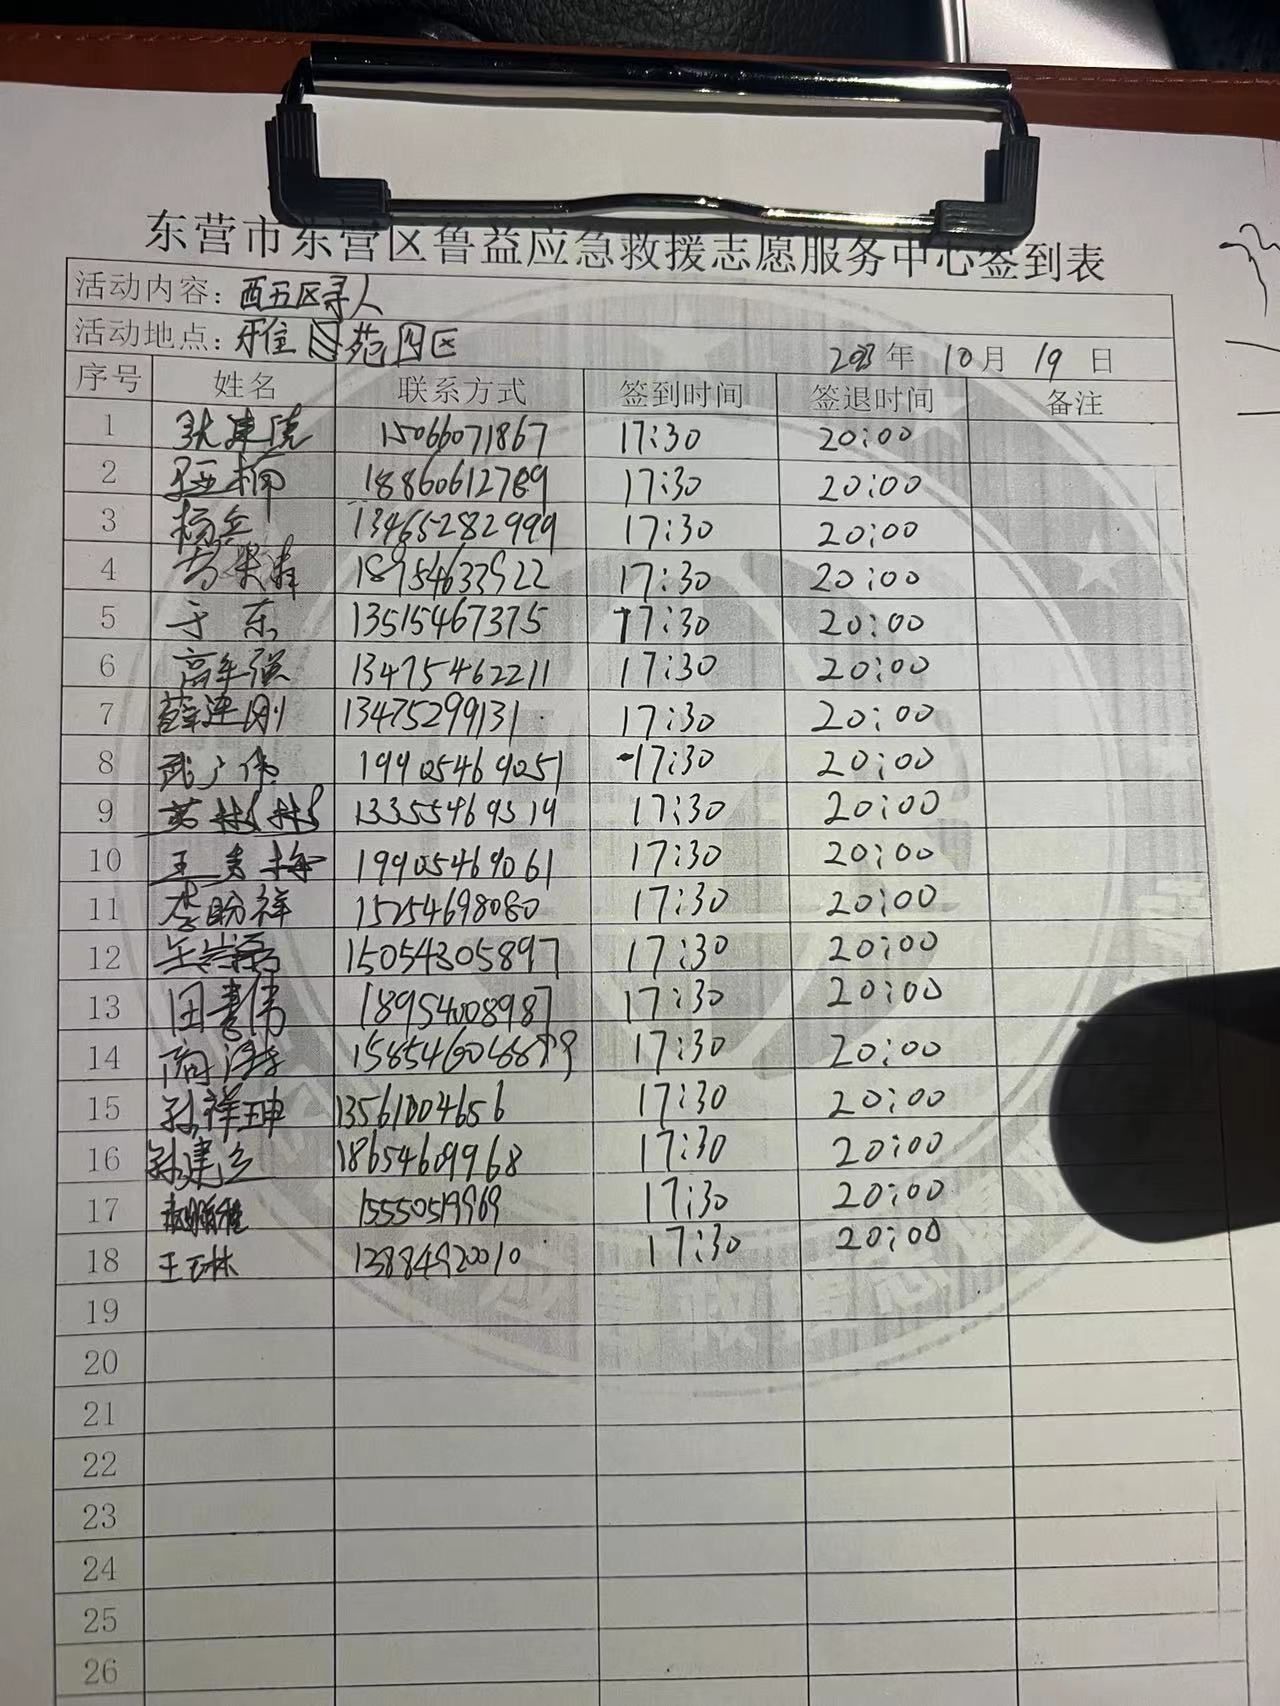 东营市东营区鲁益应急救援志愿服务中心签到表
活动内容：西五区寻人
活动地点：雅苑四区 年 10月 19日
序号 姓名 联系方式 签到时间 签退时间 备注
1 15066071867 17:30 20:00
2 18860612789 17:30 20:00
3 杨 13465282999 17:30 20:00
4 18954633922 17:30 20:00
5 于东 13515467375 17:30 20:00
6 高军强 13475462211 17:30 20:00
7 薛建刚 13475299131 17:30 20:00
8 武广伟 19905469051 17:30 20:00
9 苏彬彬 13355469519 17:30 20:00
10 王 梅 19905469061 17:30 20:00
11 李盼祥 15254698080 17:30 20:00
12 15054305897 17:30 20:00
13 田 伟 18954008987 17:30 20:00
14 商 17:30 20:00
15 孙祥坤 13561004656 17:30 20:00
16 孙建立 18654609968 17:30 20:00
17 15550519969 17:30 20:00
18 王玉林 13884920010 17:30 20:00
19
20
21
22
23
24
25
26